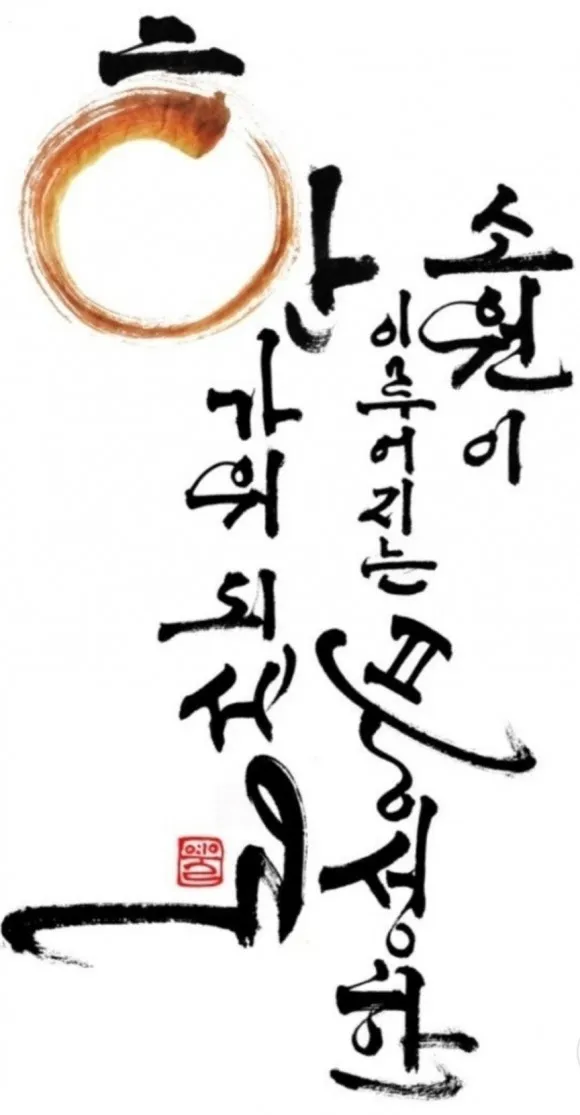 소원이
이루어지는 풍성한
한가위 되세요